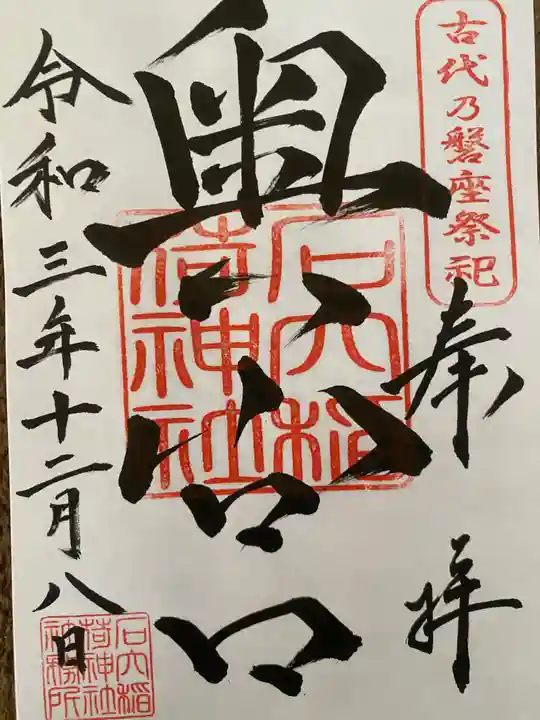 古代乃磐座祭祀
奉拝
奥宮
石穴稲
荷神社
令和三年十二月八日
石穴稲
荷神社